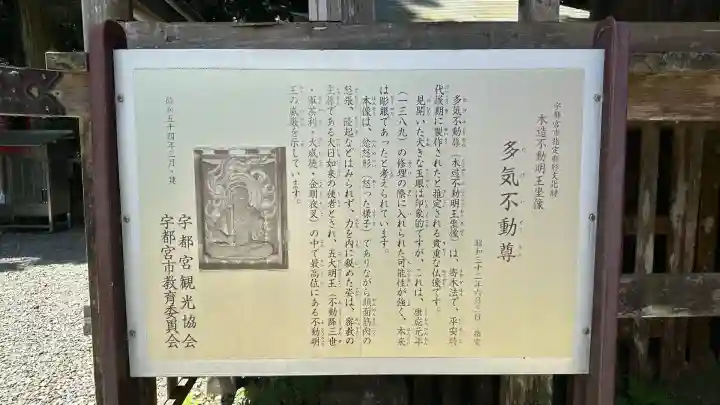 宇都宮市指定有形文化財
木造不動明王坐像
多気不動尊
昭和三十二年六月 日 指定
多気不動尊（木造不動明王坐像）は、寄木法で、平安時
代後期に製作されたと推定される貴重な仏像です。
見開いた大きな玉眼は印象的ですが、これは、康応元年
（一三八九）の修理の際に入れられた可能性が強く、本来
は彫眼であったと考えられています。
本像は、忿怒形（怒った様子）でありながら顔面筋肉の
怒張、隆起などはみられず、力を内に秘めた姿は、密教の
主尊である大日如来の使者とされ、五大明王（不動・降三世
・軍荼利・大威徳・金剛夜叉）の中で最高位にある不動明
王の威厳を示しています。
昭和五十四年三月 建
宇都宮観光協会
宇都宮市教育委員会